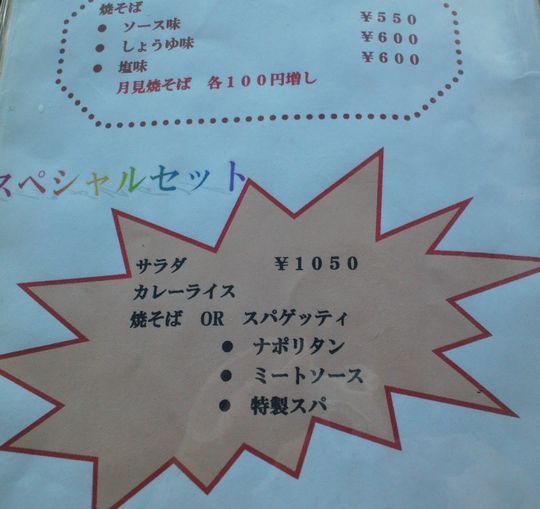 焼そば
● ソース味 ￥５５０
● しょうゆ味 ￥６００
● 塩味 ￥６００
月見焼そば 各１００円増し
スペシャルセット
サラダ ￥１０５０
カレーライス
焼そば OR スパゲッティ
● ナポリタン
● ミートソース
● 特製スパ